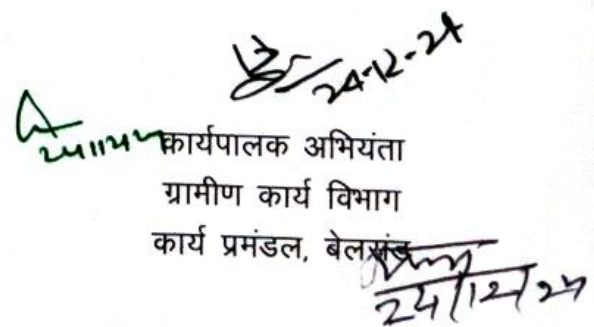 24-12-24
कार्यपालक अभियंता
ग्रामीण कार्य विभाग
कार्य प्रमंडल, बेलसंड
24/12/24